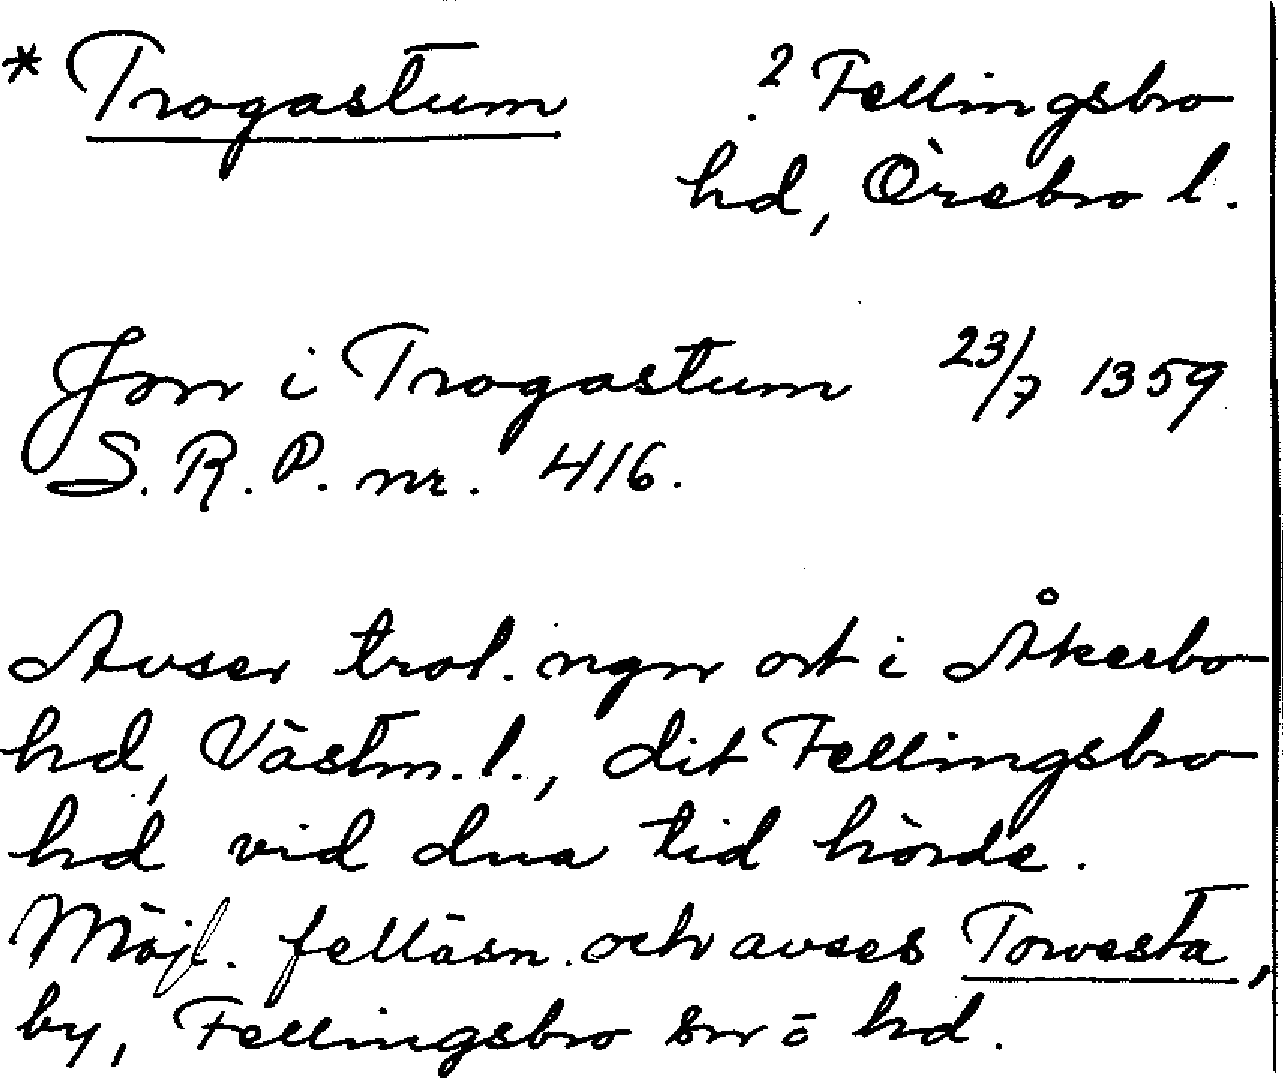 * Trogastum ? Fellingsbro
hd, Örebro l.
Jon i Trogastum 23/7 1359
S.R.P. nr. 416.
Avser trol. ngn ort i Åkerbo
hd, Västm. l., dit Fellingsbro
hd vid dna tid hörde.
Möjl. felläsn. och avses Torvesta,
by, Fellingsbro sn o hd.